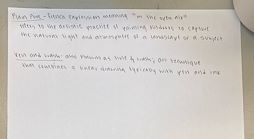 Plein Aire - French expression meaning "in the open air"
refers to the artistic practice of painting outdoors to capture
the natural light and atmosphere of a landscape or a subject
Pen and wash: also known as line & wash, art technique
that combines a linear drawing typically with pen and ink